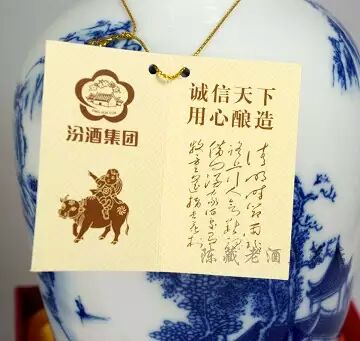 汾酒集团
诚信天下
用心酿造
清明时节雨纷纷
路上行人欲断魂
借问酒家何处有
牧童遥指杏花村
陈藏老酒